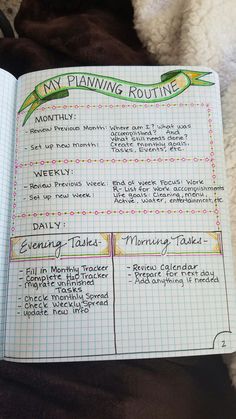 MY PLANNING ROUTINE
MONTHLY:
- Review Previous Month: Where am I? What was
accomplished? And
What still needs done?
- Set up new month: Create monthly goals,
Tasks, Events, etc.
WEEKLY:
- Review Previous Week: End of week Focus! Work
R- List for Work accomplishments
- Set up new Week: Life Goals: Cleaning, menu,
Active, Water, entertainment, etc
DAILY:
Evening Tasks-
- Fill in Monthly Tracker
- Complete H2O Tracker
- Migrate unfinished
Tasks
- Check Monthly Spread
- Check Weekly Spread
- update new info
Morning Tasks-
- Review Calendar
- Prepare for next day
- Add anything if needed
2